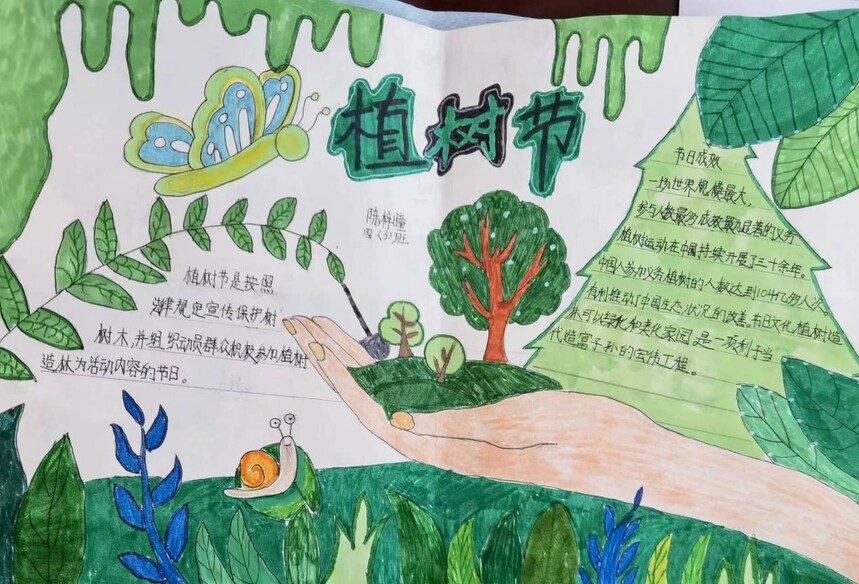 植树节
陈梓瞳
四(3)班
植树节是按照
法律规定宣传保护树
树木,并组织动员群众积极参加植树
造林为活动内容的节日。
节日成效
一场世界规模最大,
参与人数最多成效最为显著的义务
植树运动在中国持续开展了三十余年。
中国人参加义务植树的人数达到104亿多人次。
有利推动了中国生态状况的改善。节日文化,植树造
林可以绿化和美化家园是一项利于当
代造富子孙的宏伟工程。